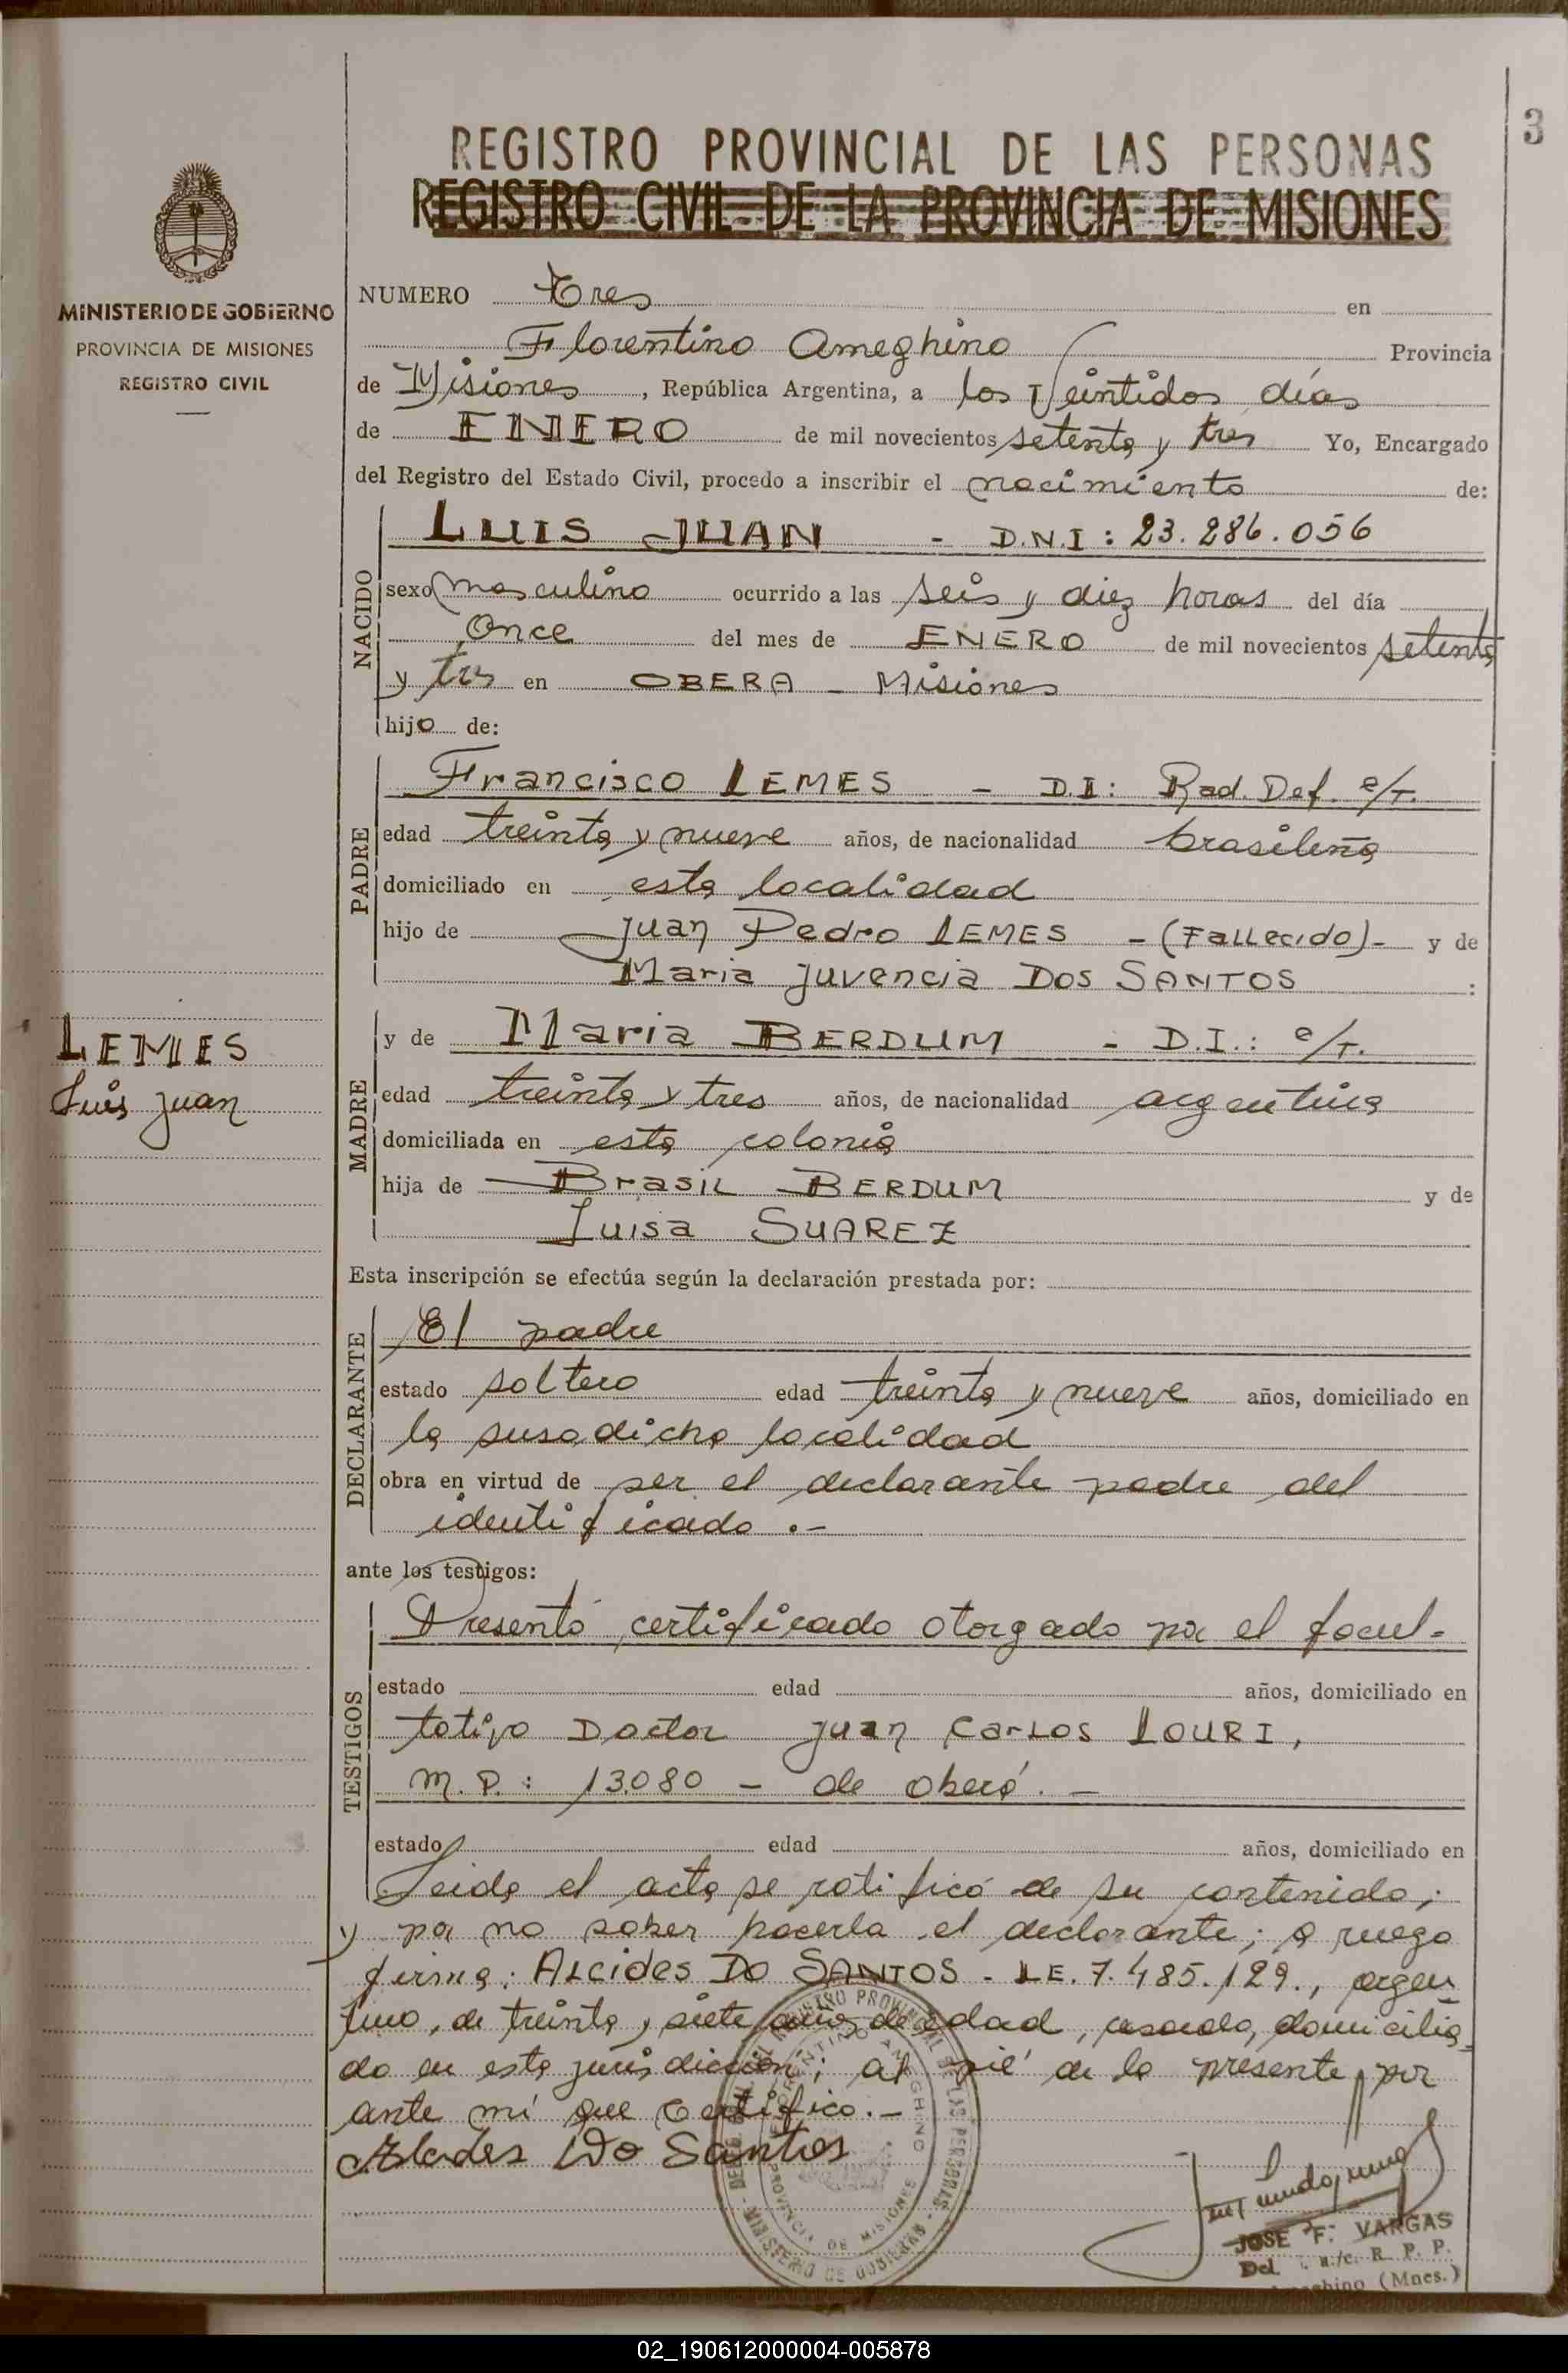 3
REGISTRO PROVINCIAL DE LAS PERSONAS
REGISTRO CIVIL DE LA PROVINCIA DE MISIONES
MINISTERIO DE GOBIERNO
PROVINCIA DE MISIONES
REGISTRO CIVIL
NUMERO Tres en
Florentino Ameghino Provincia
de Misiones, República Argentina, a los Veintidos días
de ENERO de mil novecientos setenta y tres Yo, Encargado
del Registro del Estado Civil, procedo a inscribir el nacimiento de:
NACIDO
LUIS JUAN - D.N.I: 23.286.056
sexo masculino ocurrido a las seis y diez horas del día
Once del mes de ENERO de mil novecientos setenta
y tres en OBERA - Misiones
hijo de:
PADRE
Francisco LEMES - D.I: Rad. Def. e/T.
edad treinta y nueve años, de nacionalidad brasileña
domiciliado en esta localidad
hijo de Juan Pedro LEMES - (Fallecido)- y de
Maria Juvencia DOS SANTOS :
LEMES
Luis Juan
MADRE
y de Maria BERDUM - D.I.: e/T.
edad treinta y tres años, de nacionalidad argentina
domiciliada en esta colonia
hija de Brasil BERDUM y de
Luisa SUAREZ
Esta inscripción se efectúa según la declaración prestada por:
DECLARANTE
El padre
estado soltero edad treinta y nueve años, domiciliado en
la susodicha localidad
obra en virtud de ser el declarante padre del
identificado .-
ante los testigos:
TESTIGOS
Presentó certificado otorgado por el facul-
estado edad años, domiciliado en
tativo Doctor Juan Carlos LOURI,
M.P.: 13.080 - de Oberá. -
estado edad años, domiciliado en
Leida el acta se ratificó de su contenido;
y por no saber hacerla el declarante; a ruego
firma: Alcides DO SANTOS - L.E. 7.485.129., argen
tino, de treinta y siete años de edad, casado, domicilia
do en esta jurisdicción; al pié de la presente, por
ante mí que certifico.-
Alcides Do Santos
REGISTRO PROVINCIAL DE LAS PERSONAS - MINISTERIO DE GOBIERNO
FLORENTINO AMEGHINO
PROVINCIA DE MISIONES
JOSE F. VARGAS
Del. a/c. R. P. P.
(Mnes.)
02_190612000004-005878